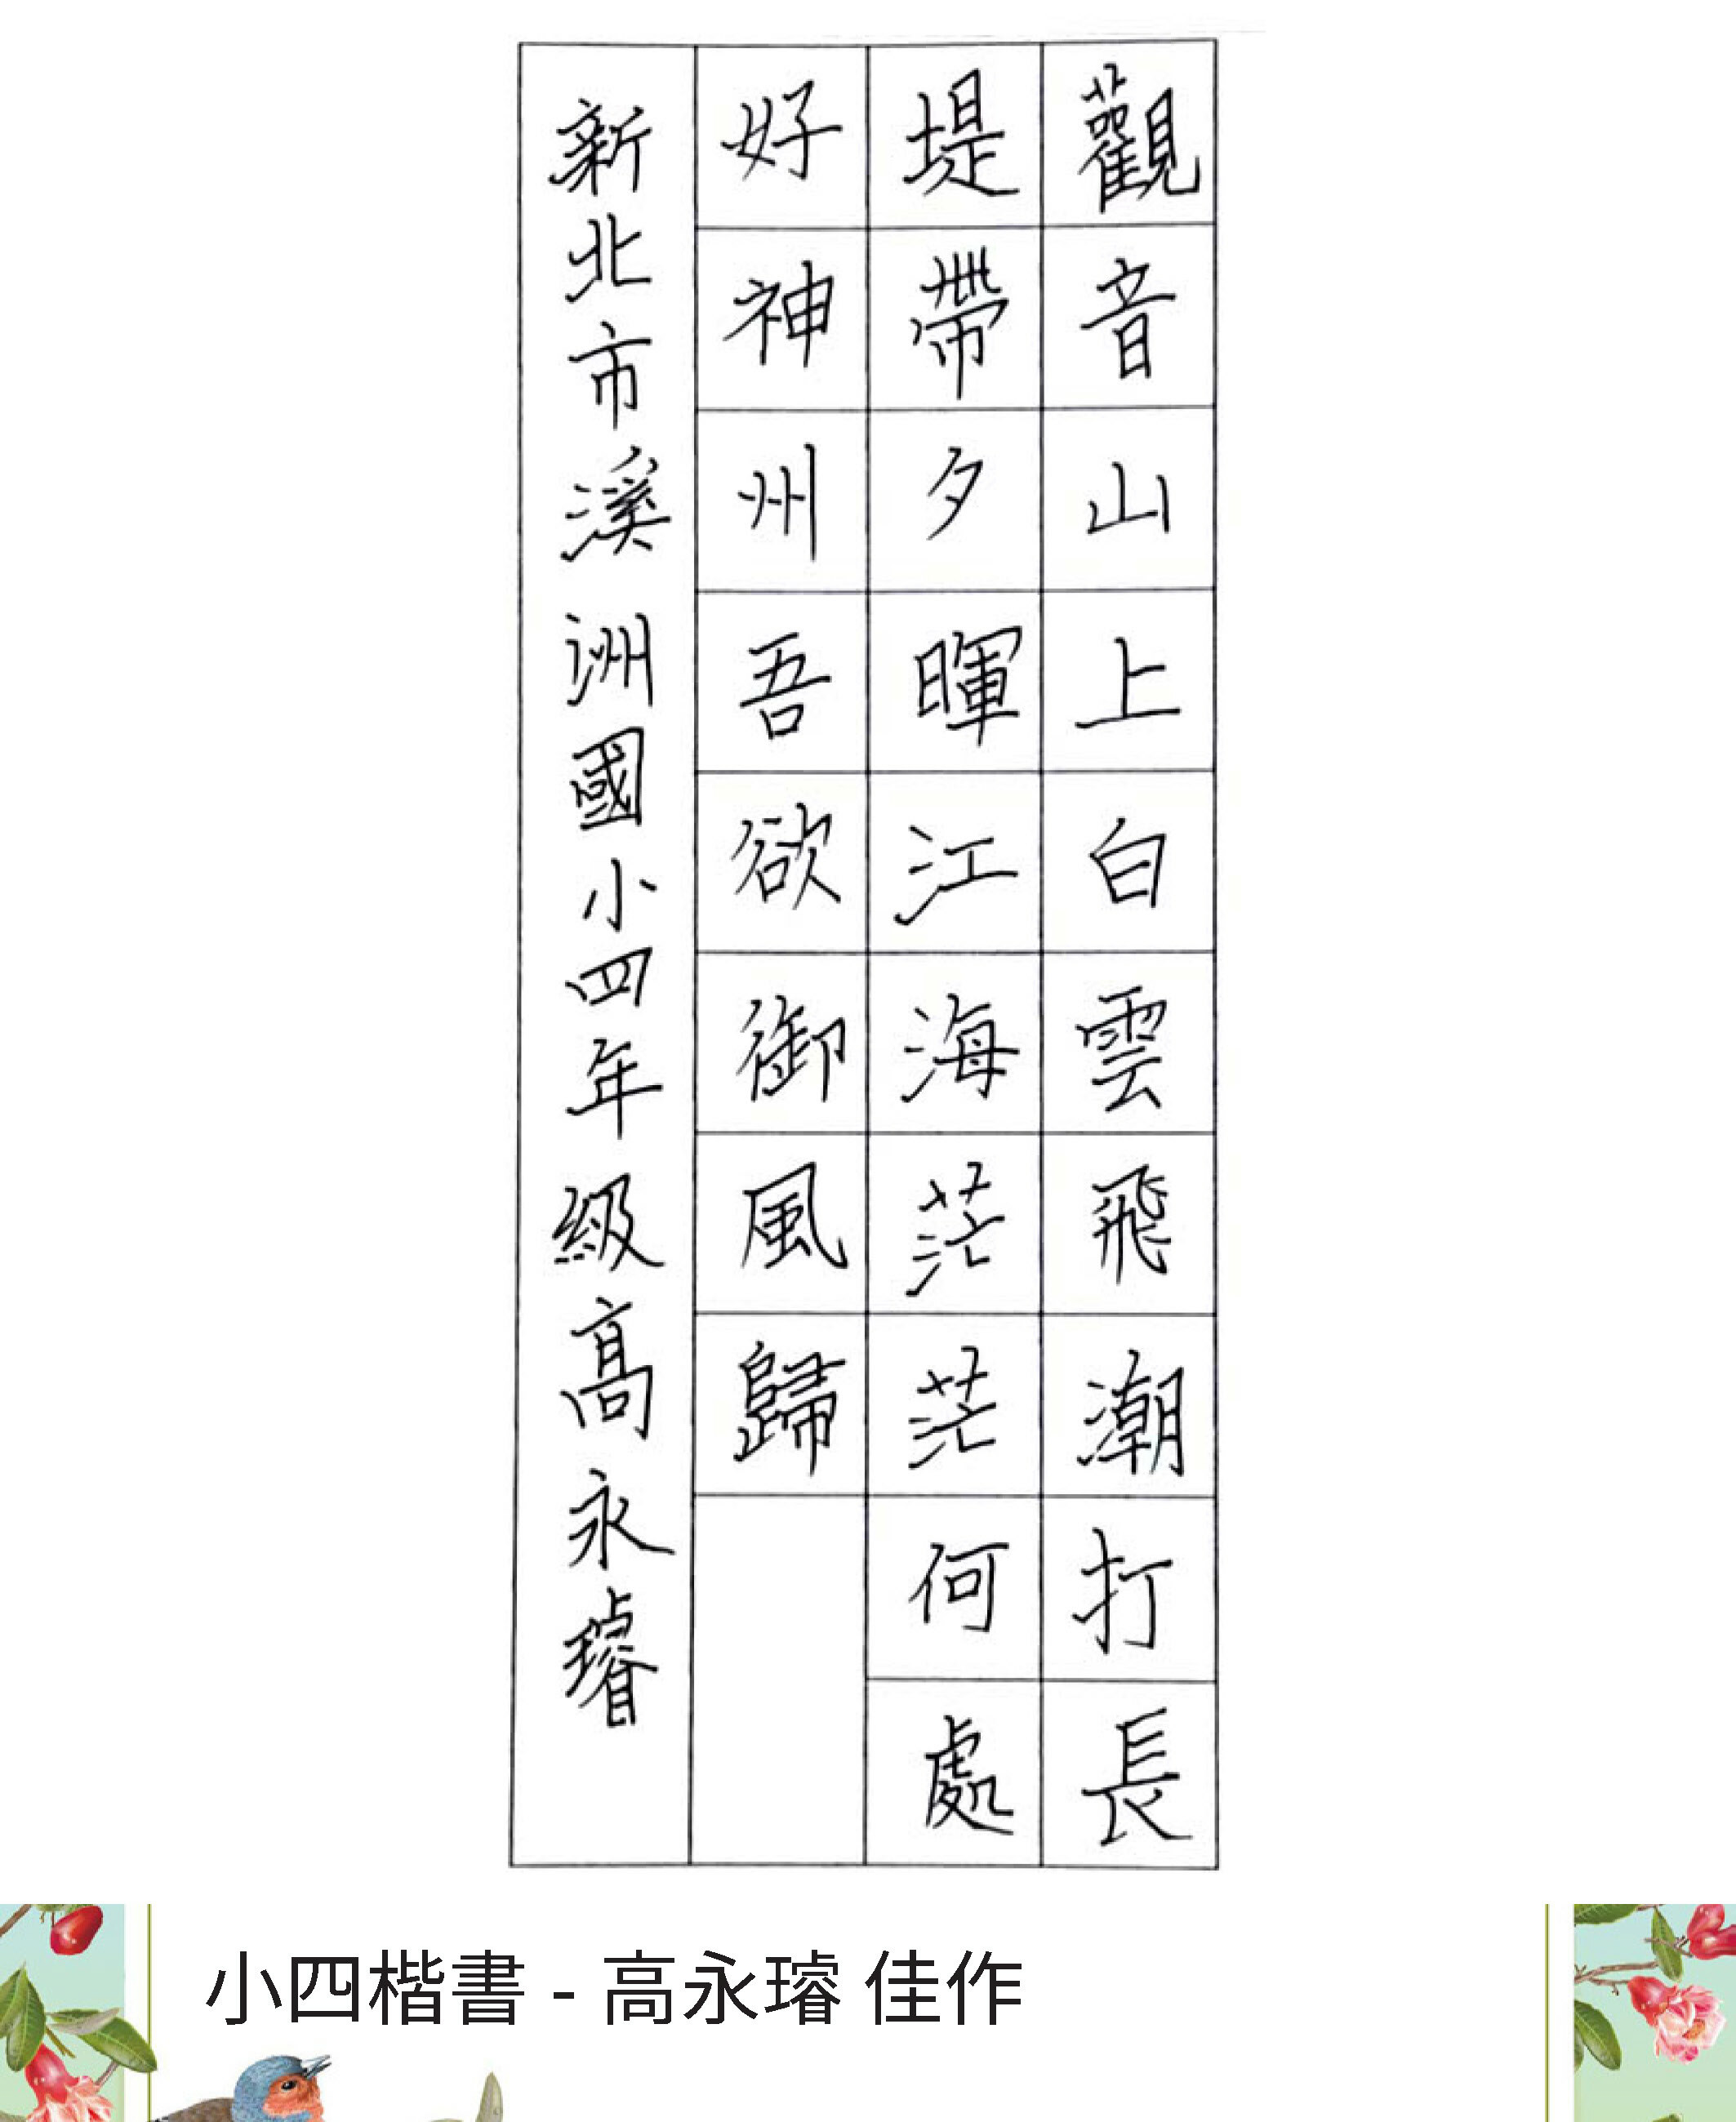 觀音山上白雲飛潮打長
堤帶夕暉江海茫茫何處
好神州吾欲御風歸
新北市溪洲國小四年級高永璿
小四楷書 - 高永璿 佳作